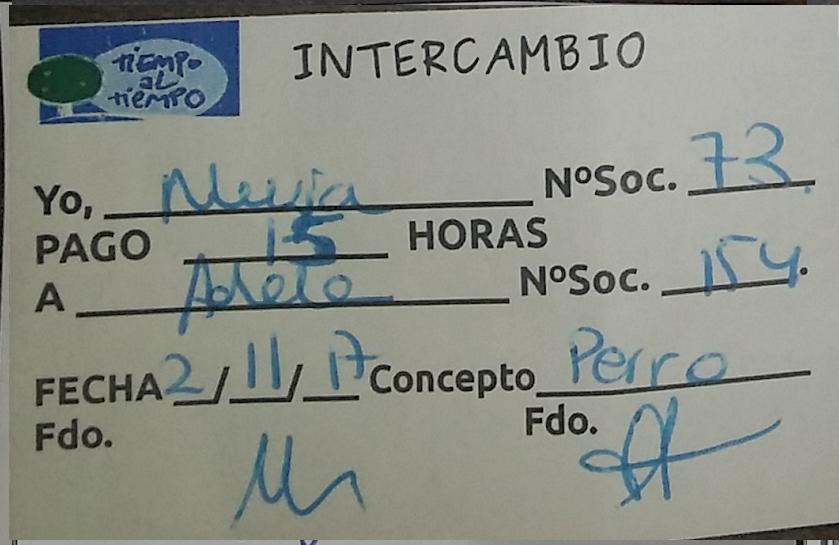 tiempo
al
tiempo
INTERCAMBIO
Yo, Nº Soc. 73.
PAGO 15 HORAS
A Adela Nº Soc. 154.
FECHA 2/11/17 Concepto Perro
Fdo. Fdo.